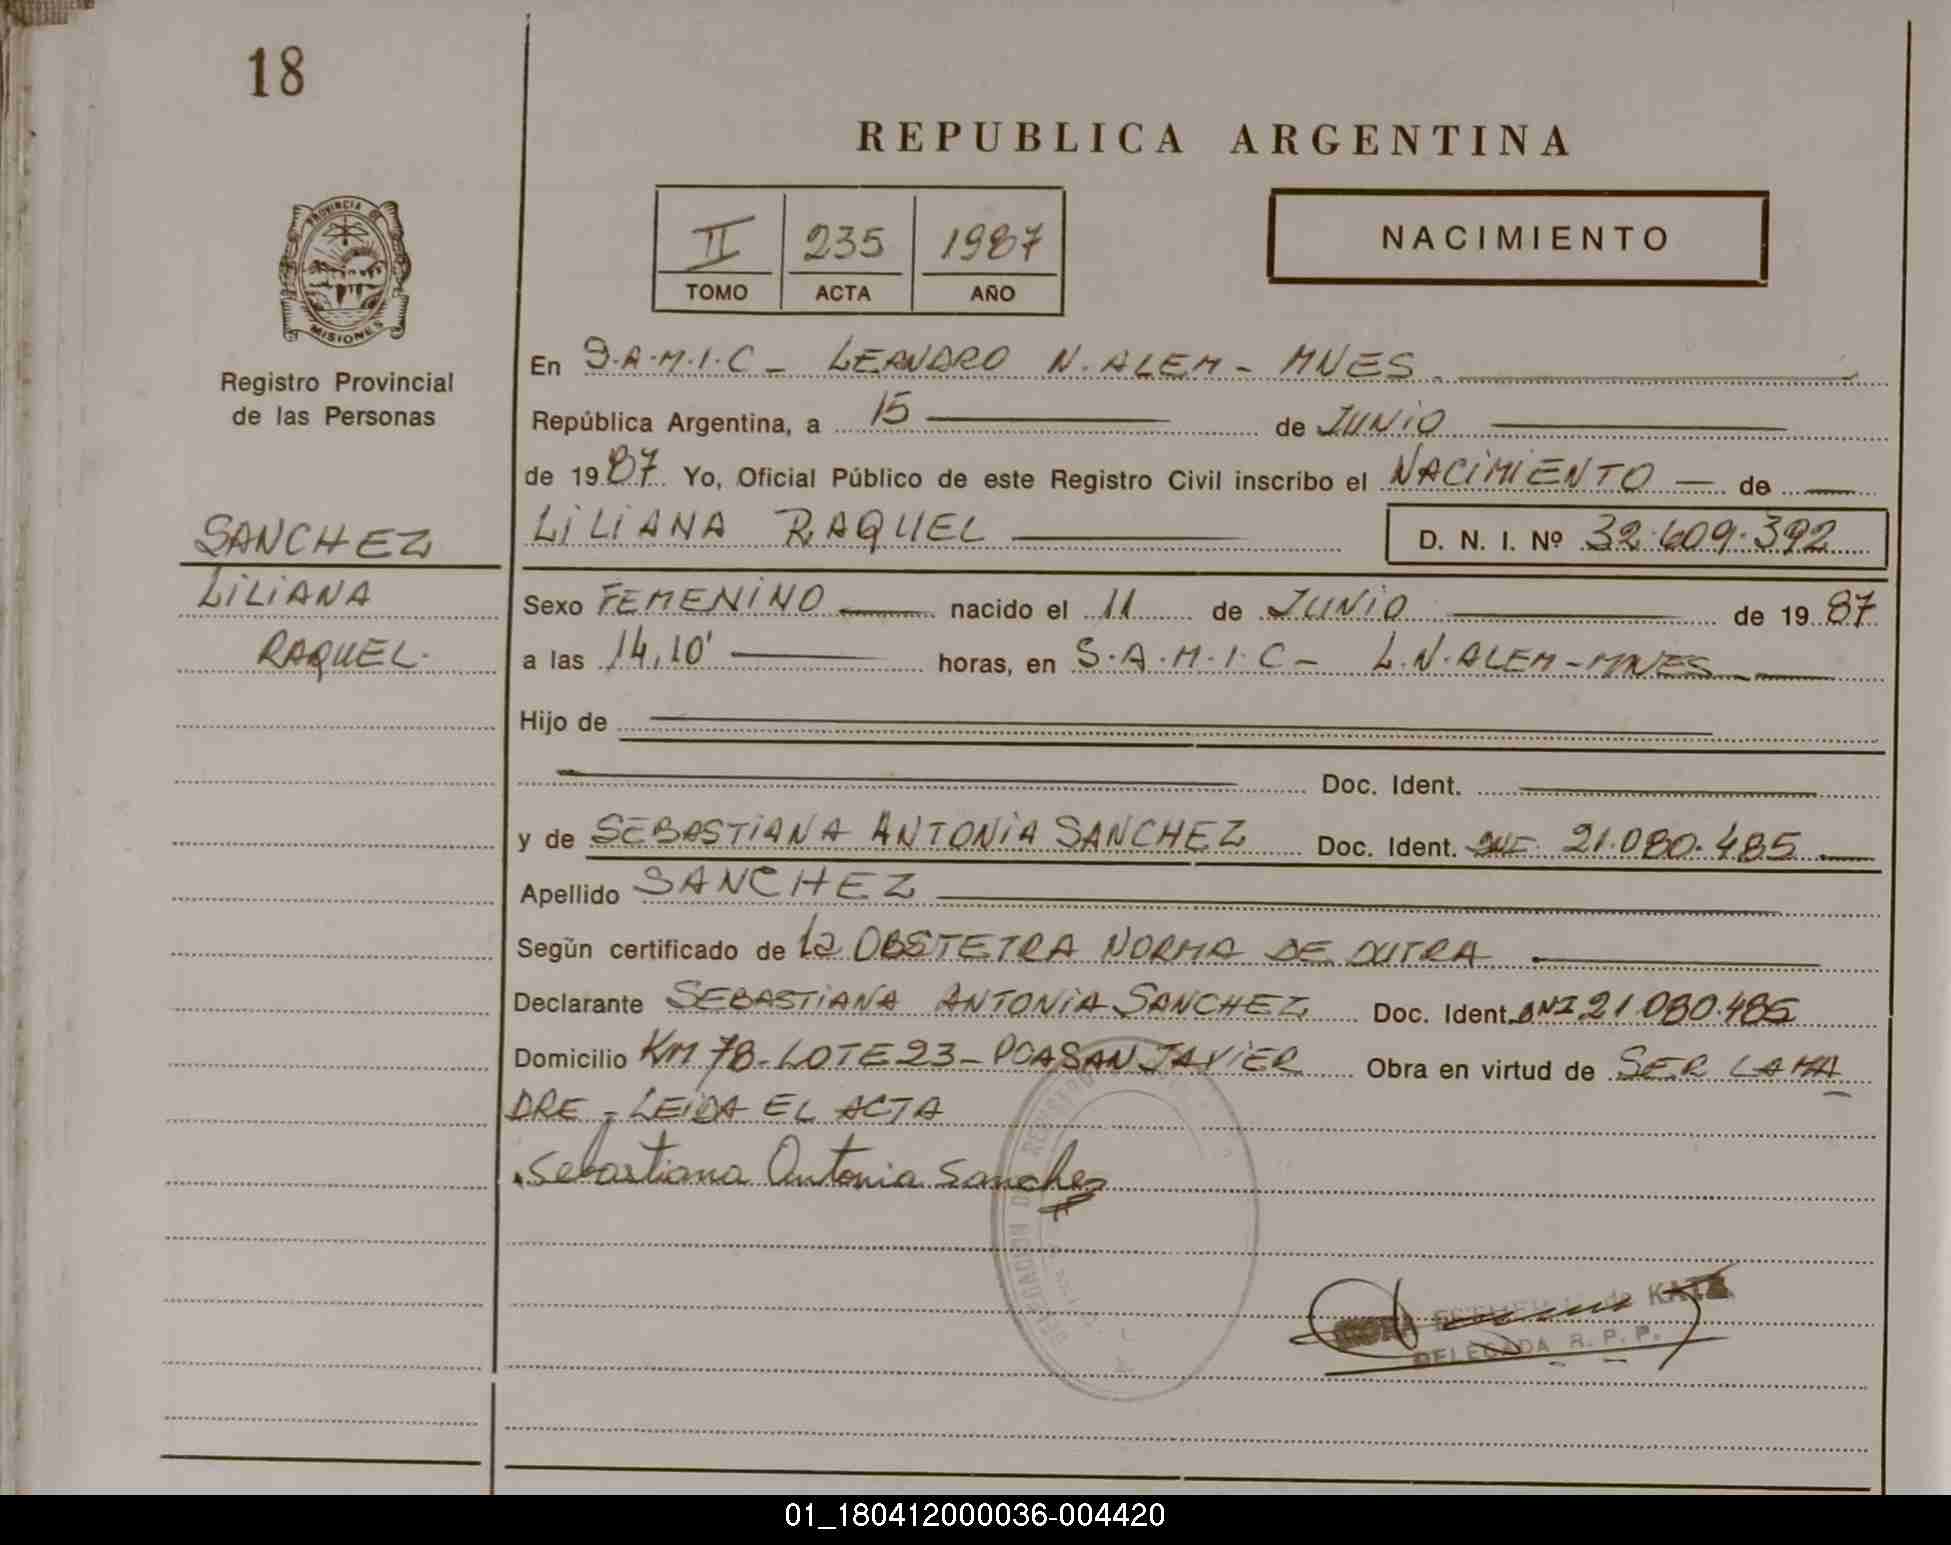 18
REPUBLICA ARGENTINA
PROVINCIA DE
MISIONES
II 235 1987
TOMO ACTA AÑO
NACIMIENTO
Registro Provincial
de las Personas
SANCHEZ
LILIANA
RAQUEL.
En S.A.M.I.C - LEANDRO N. ALEM - MNES.
República Argentina, a 15 de JUNIO
de 1987. Yo, Oficial Público de este Registro Civil inscribo el NACIMIENTO — de
LILIANA RAQUEL D. N. I. Nº 32.609.392
Sexo FEMENINO nacido el 11 de JUNIO de 1987
a las 14,10' horas, en S.A.M.I.C - L.N. ALEM - MNES
Hijo de
Doc. Ident.
y de SEBASTIANA ANTONIA SANCHEZ Doc. Ident. 21.080.485
Apellido SANCHEZ
Según certificado de la OBSTETRA NORMA DE DUTRA
Declarante SEBASTIANA ANTONIA SANCHEZ Doc. Ident. DNI 21.080.485
Domicilio KM 78 - LOTE 23 - PCA SAN JAVIER Obra en virtud de SER LA MA
DRE - LEIDA EL ACTA
Sebastiana Antonia Sanchez
de KATZ
DELEGADA R. P. P.
01_180412000036-004420